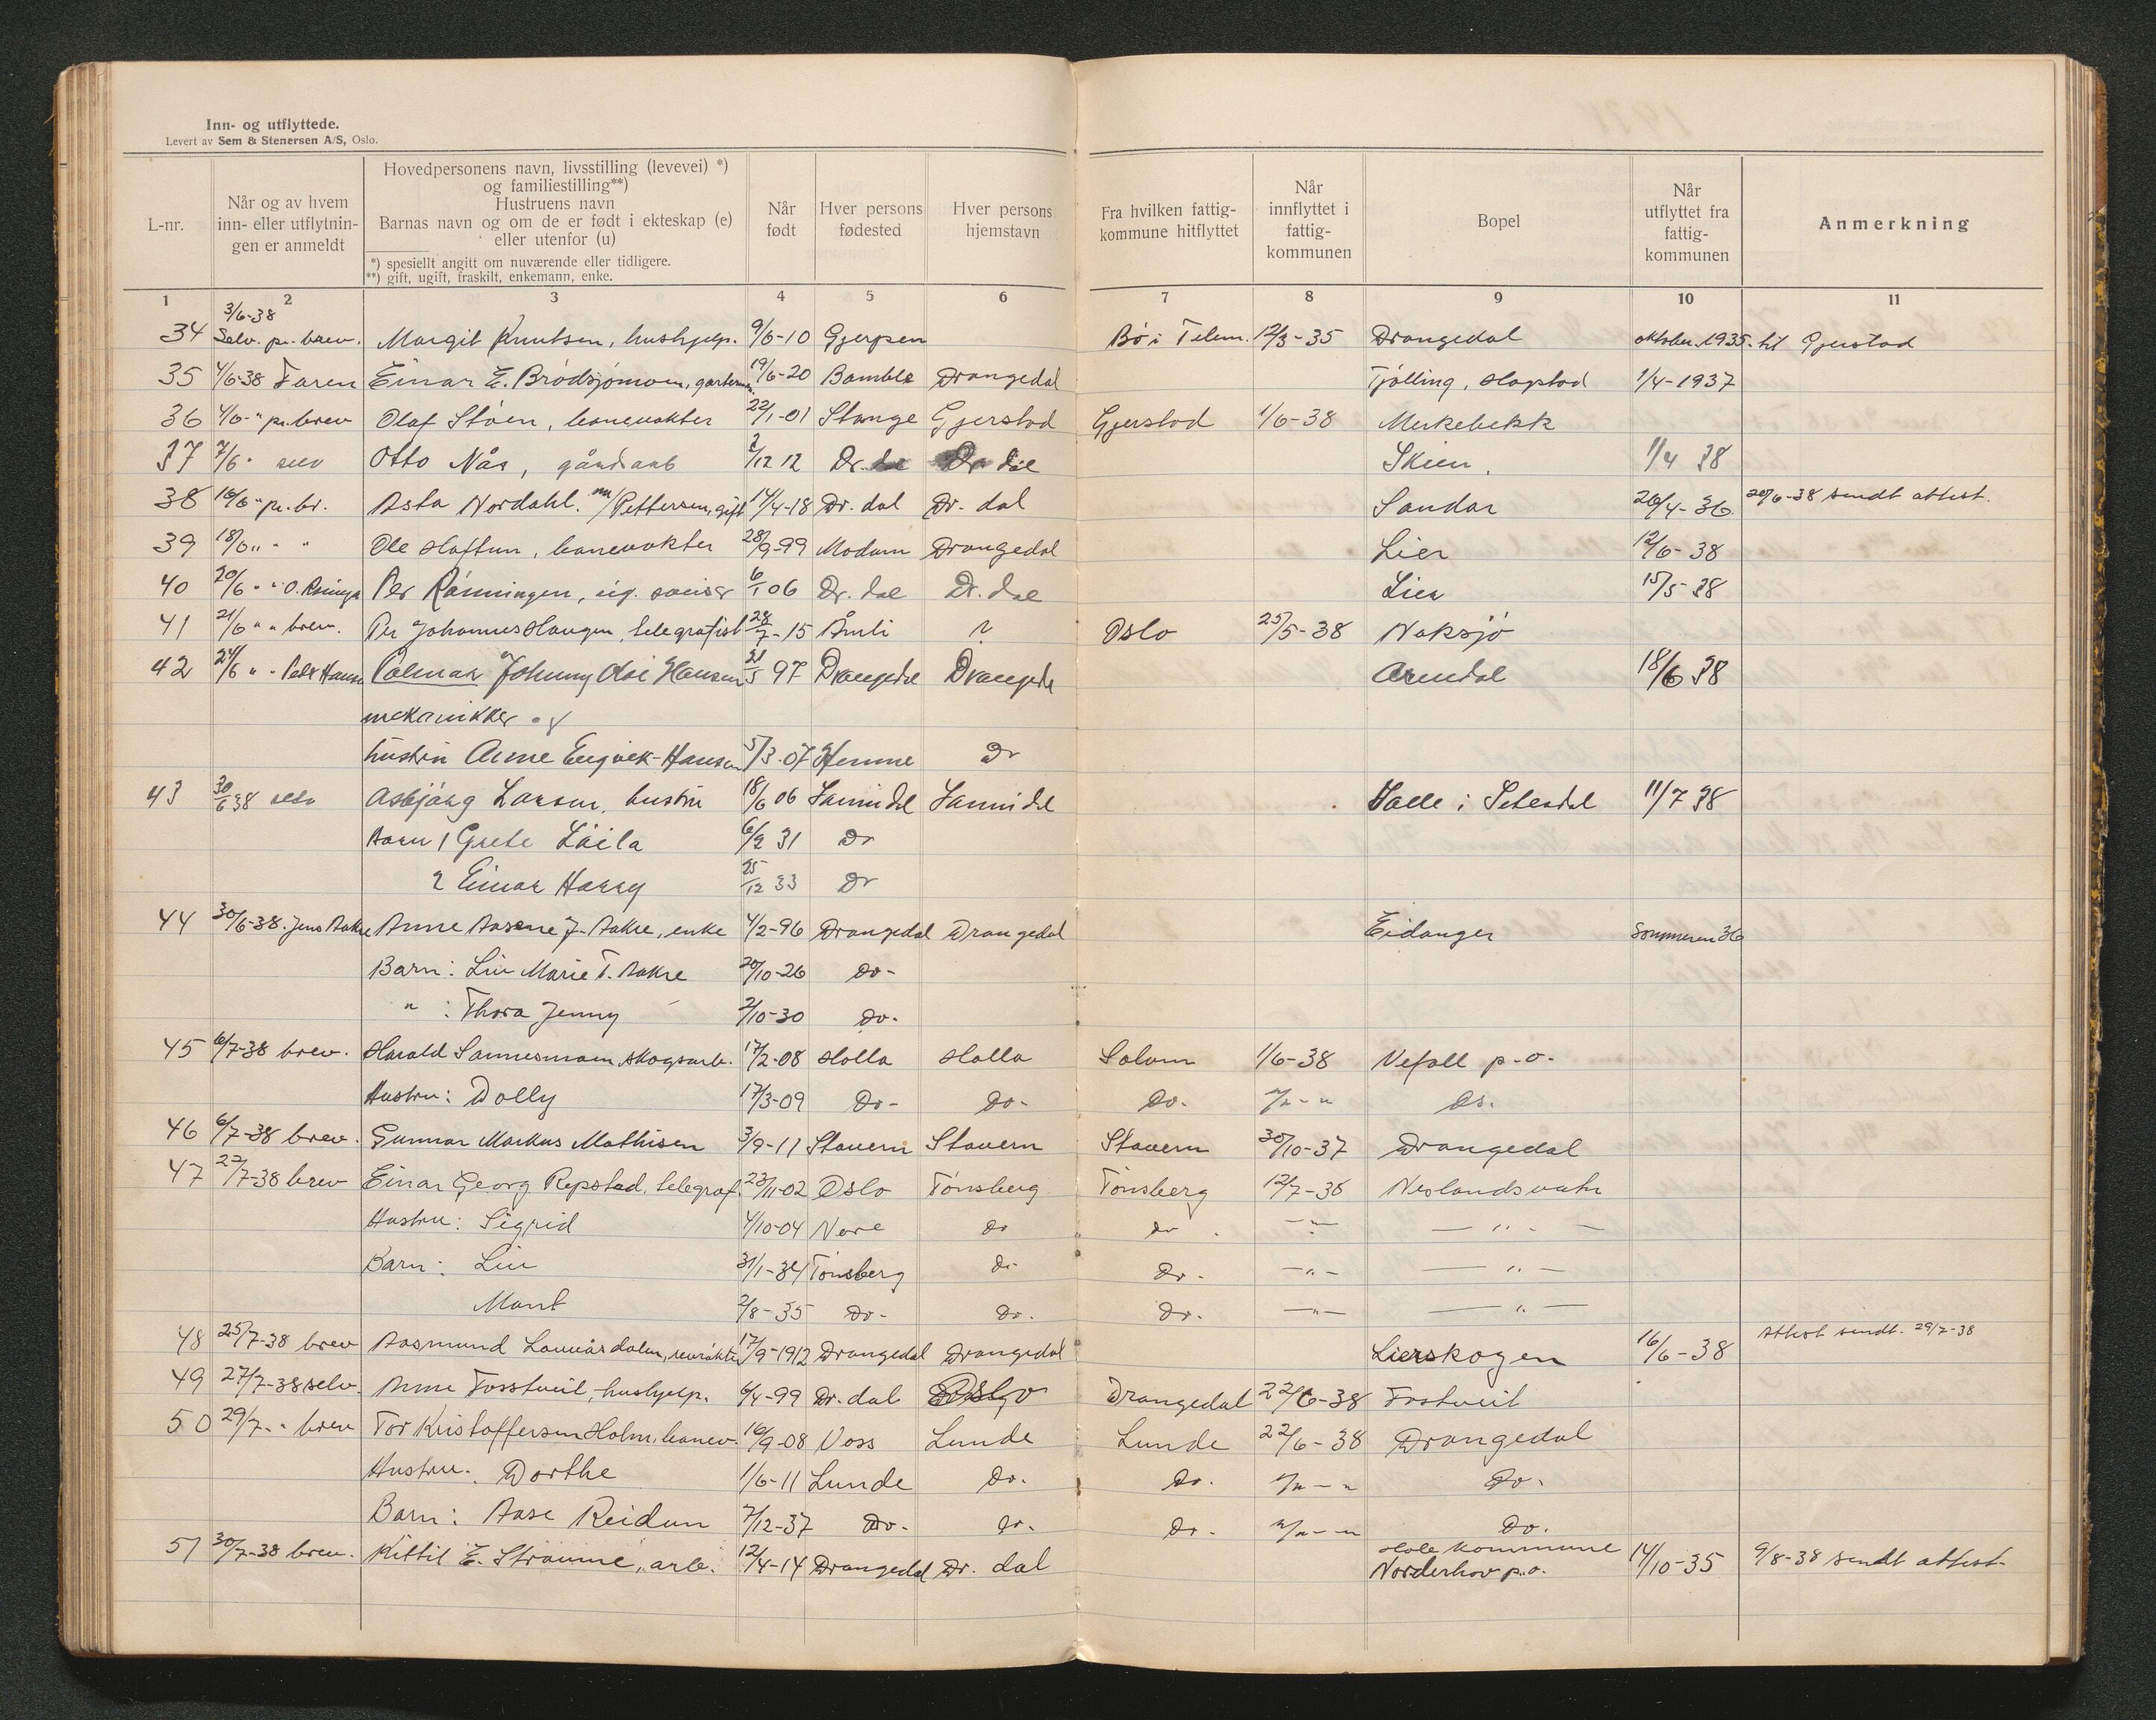 Inn- og utflyttede.
Levert av Sem & Stenersen A/S, Oslo.
L-nr.
Når og av hvem inn- eller utflytnin-gen er anmeldt
Hovedpersonens navn, livsstilling (levevei) *)
og familiestilling**)
Hustruens navn
Barnas navn og om de er født i ekteskap (e)
eller utenfor (u)
*) spesiellt angitt om nuværende eller tidligere.
**) gift, ugift, fraskilt, enkemann, enke.
Når født
Hver persons fødested
Hver persons hjemstavn
Fra hvilken fattig-kommune hitflyttet
Når innflyttet i fattig-kommunen
Bopel
Når utflyttet fra fattig-kommunen
Anmerkning
1 2 3 4 5 6 7 8 9 10 11
3/6-38
34 Selv. pr. brev. Margit Knutsen, hushjelp. 9/6-10 Gjerpen Bø i Telem. 12/3-35 Drangedal oktober 1935. til Gjerstad
35 4/6-38 Faren Einar E. Brødsjømoen, gartner 19/6-20 Bamble Drangedal Tjølling, 1/4-1937
36 4/6-" pr. brev Olaf Støen, banevokter 22/1-01 Stange Gjerstad Gjerstad 1/6-38 Merkebekk
37 7/6 " selv Otto Nås, gårdsarb 2/12 12 Dr. dal Dr dal Skien. 1/4 38
38 16/6 " pr. br. Asta Nordahl. m/Pettersen, gift 14/4-18 Dr. dal Dr. dal Sandar 26/4-36 20/6-38 sendt attest.
39 18/6 " - " Ole Haftun, banevokter 28/9-99 Modum Drangedal Lier 12/6-38
40 20/6 " " O. Per Rønningen, sveiser 6/1 06 Dr. dal Dr. dal Lier 15/5-38
41 21/6 " " brev. Per Johannes Haugen, telegrafist 28/7-15 Åmli ? Oslo 25/5-38 Naksjø
42 24/6 " - Palmar Johnny Hansen 31/5 97 Drangedal Drangedal Arendal 18/6 38
mekanikker og
hustru Anne Engvik-Hansen 5/3-07 Hemne Do
43 30/6 38 selv Asbjørg Larsen, hustru 18/6 06 Sannidal Sannidal Valle i Setesdal 11/7 38
Barn 1 Grete Laila 6/2 31 Do
2 Einar Harry 25/12 33 Do
44 30/6-38. Jens Aakre Anne Aasene J. Aakre, enke 4/2-96 Drangedal Drangedal Eidanger Sommeren 36
Barn: Liv Marie T. Aakre 20/10-26 Do-
" : Thora Jenny 2/10-30 Do-
45 6/7-38 brev. Harald Sannesmoen, skogsarb. 17/2-08 Holla Holla Solum 1/6-38 Nefall p.o.
Hustru: Dolly 17/3-09 Do- Do- Do- "/" - " Do.
46 6/7-38 brev. Gunnar Markus Mathisen 3/9-11 Stavern Stavern Stavern 30/10-37 Drangedal
47 22/7-38 brev Einar Georg Repstad, telegraf. 23/11-02 Oslo Tønsberg Tønsberg 12/7-38 Neslandsvatn
Hustru: Sigrid 4/10-04 Nore do do - " - - " -
Barn: Liv 31/1-34 Tønsberg do Do- - " - - " -
Marit 2/8-35 Do- Do. Do- - " - - " -
48 25/7-38 brev Aasmund Lauvåsdalen, 17/9-1912 Drangedal Drangedal Lierskogen 16/6-38 Attest sendt. 29/7-38
49 27/7-38 selv. Anne Fosstveit, hushjelp. 6/4-99 Dr. dal Oslo Drangedal 22/6-38 Fostveit
50 29/7 - " brev Tor Kristoffersen Holm, banev. 16/9-08 Voss Lunde Lunde 22/6-38 Drangedal
Hustru: Dorthe 1/6-11 Lunde Do. Do. "/" - " Do.
Barn: Aase Reidun 7/12-37 Do- Do. Do- "/" - " Do.
51 30/7-38 brev. Kittil E. Straume, arb. 12/4-14 Drangedal Dr. dal Hole kommune Norderhov p.o. 14/10-35 9/8-38 sendt attest-